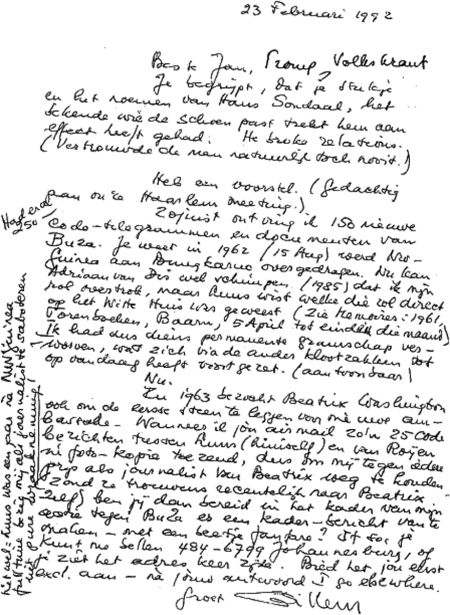 23 Februari 1992
Beste Jan, Tromp, Volkskrant
Je begrijpt, dat je stukje
en het noemen van Hans Sondaal, het
bekende wie de schoen past trekt hem aan
effect heeft gehad. He broke relations.
(Vertrouwde de man natuurlijk toch nooit.)
Heb een voorstel. (Gedachtig
aan onze Haarlem meeting.)
Zojuist ontving ik 150 nieuwe
Code-telegrammen en documenten van
Buza. Je weet in 1962 (15 Aug) werd Nw-
Guinea aan Bung Karno overgedragen. Nu kan
Adriaan van Dis wel schimpen (1985) dat ik mijn
rol overtrok, maar Luns wist welke die rol direct
op het Witte Huis was geweest (Zie Memoires: 1961,
Torenboeken, Baarn, 5 April tot einde die maand)
Ik had dus diens permanente gramschap ver-
worven, wat zich via de andere klootzakken tot
op vandaag heeft voortgezet. (aantoonbaar)
Nu.
In 1963 bezocht Beatrix Washington
ook om de eerste steen te leggen van onze nieuwe am-
bassade. Wanneer ik jou air mail zo'n 25 code
berichten tussen Luns (himself) en van Roijen
in foto-kopie toezend, dus om mij tegen iedere
prijs als journalist van Beatrix weg te houden
(zond ze trouwens recentelijk naar Beatrix
zelf) ben jij dan bereid in het kader van mijn
tegen Buza er een kader-bericht van te
maken - met een beetje fanfare? If so, je
kunt me bellen 484-6799 Johannesburg, of
je ziet het adres keer zijde. Bied het jou eerst
excl. aan - na jouw antwoord I go elsewhere.
Groet Willem
250
het wel: Luns was een jaar na NW Guinea
full time bezig mij als journalist te saboteren
uit pure wraakneming!